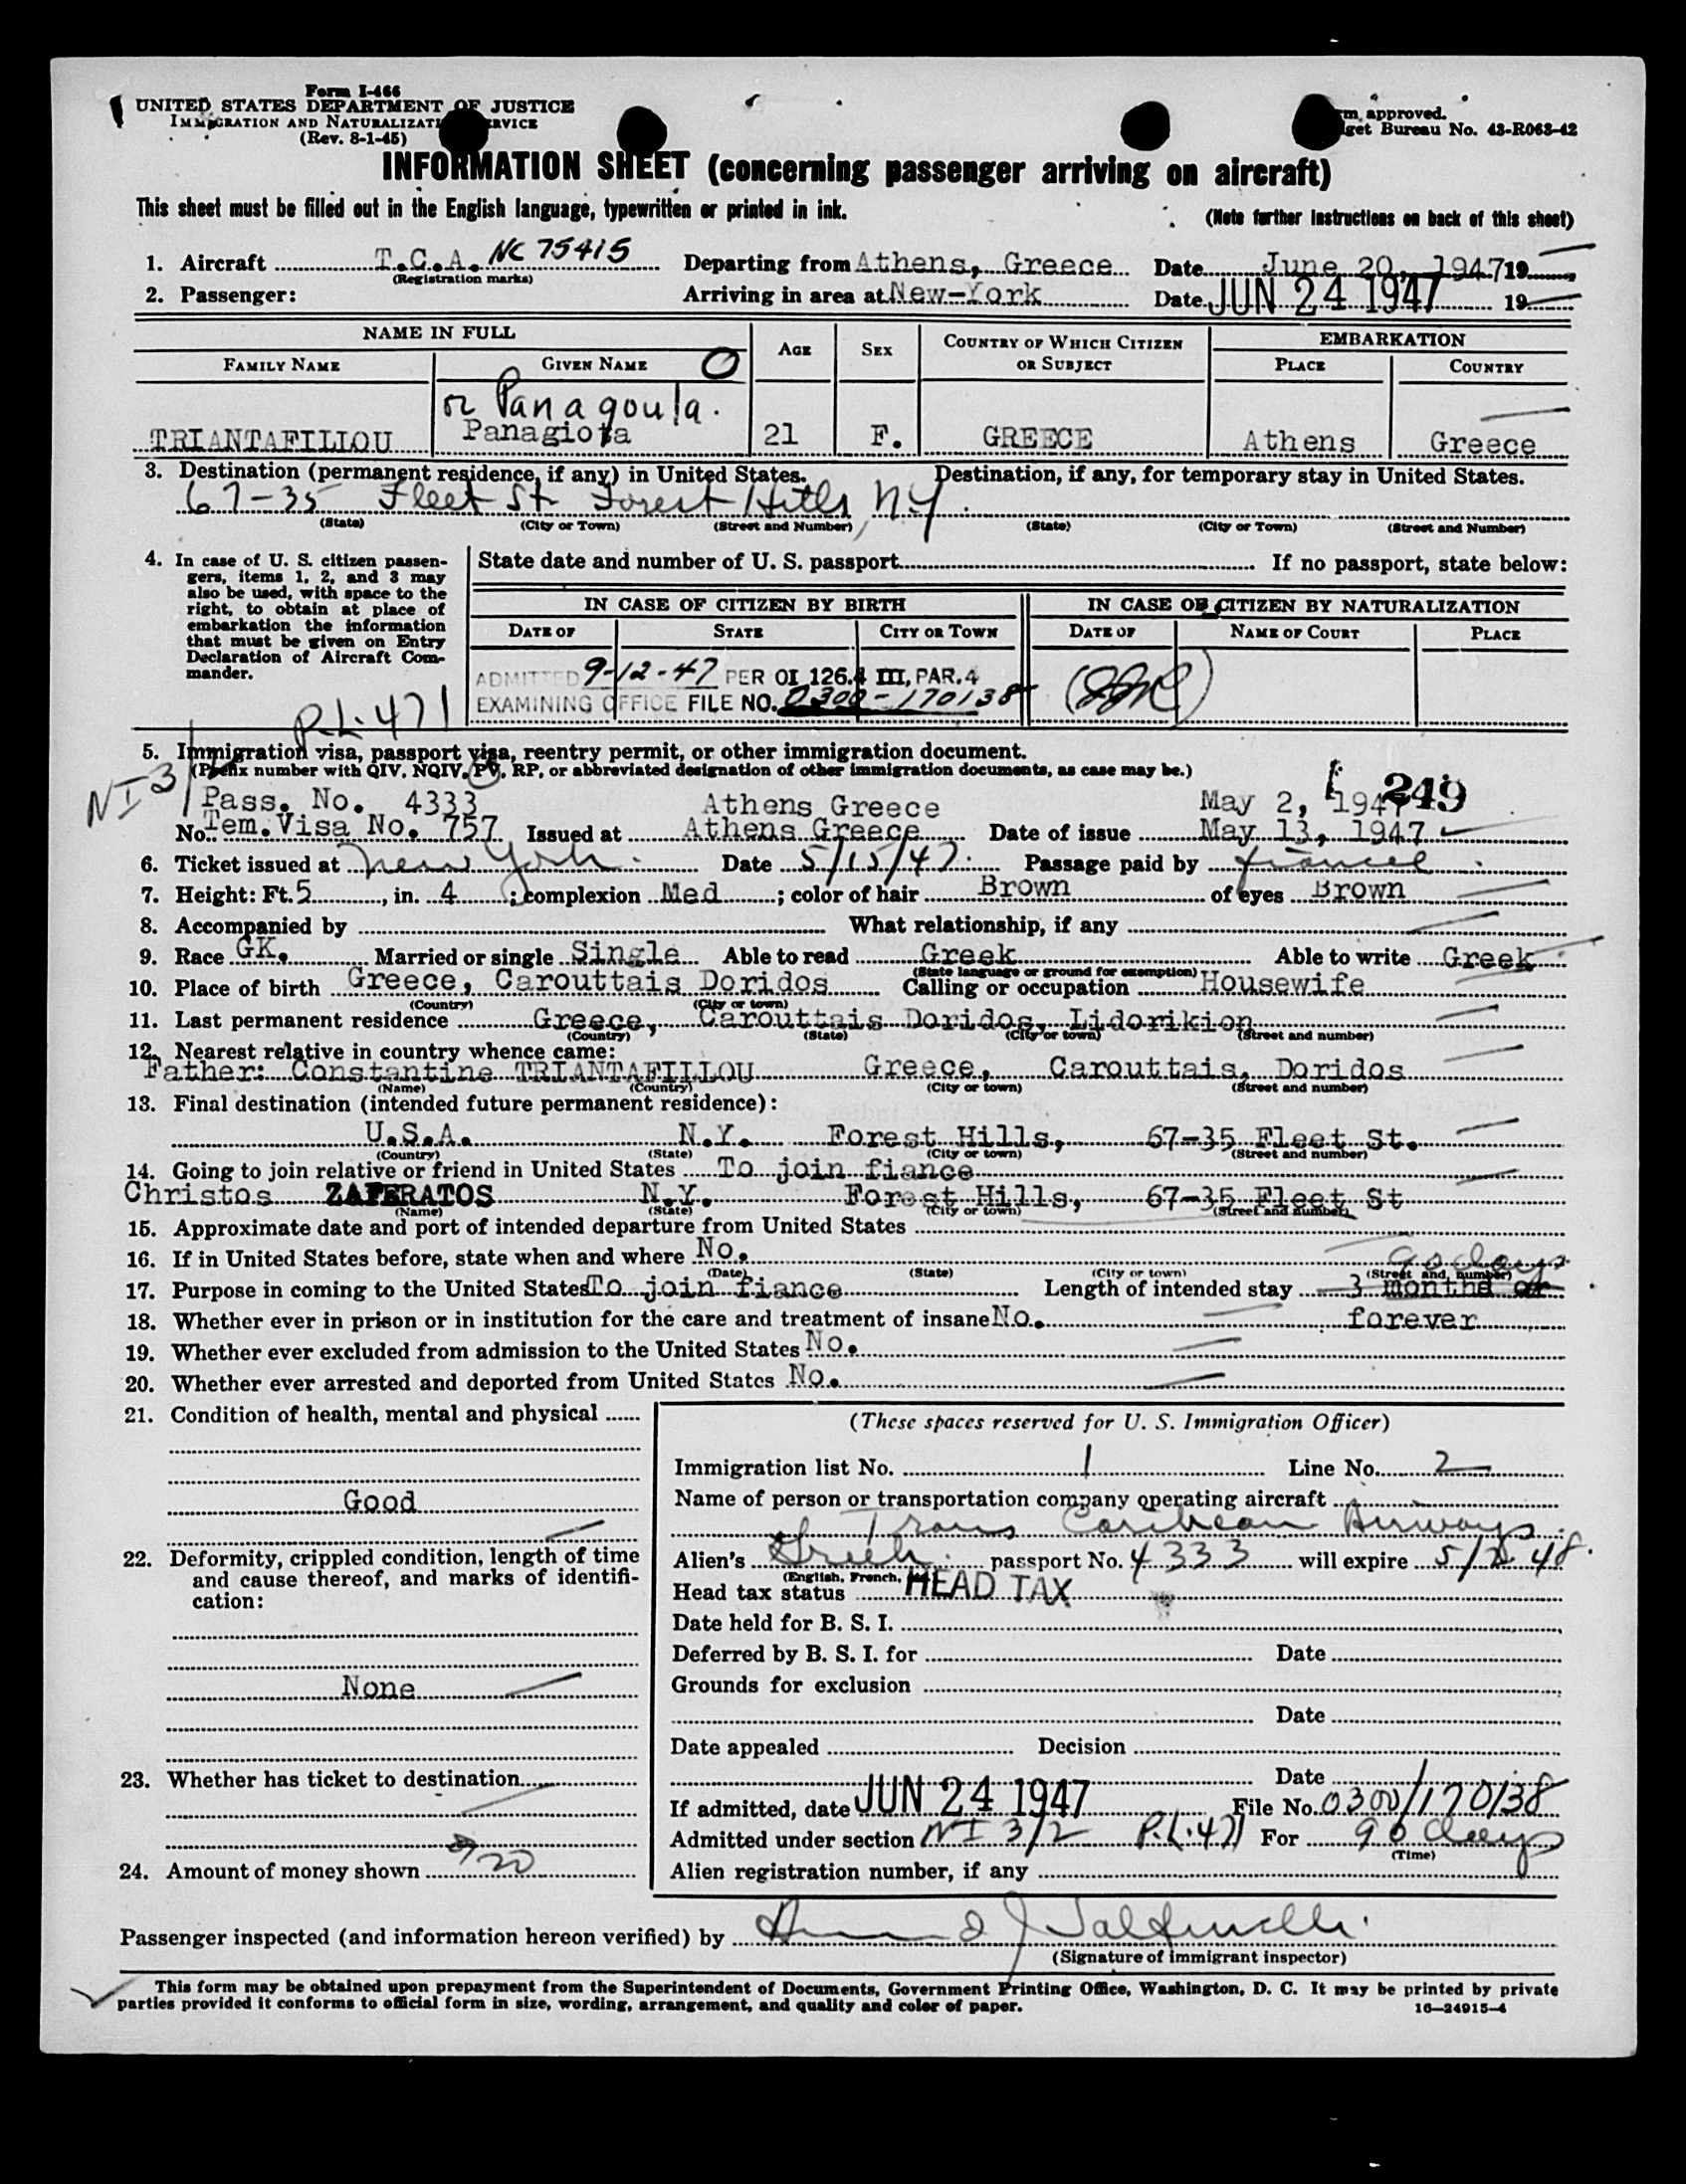 Form I-466
UNITED STATES DEPARTMENT OF JUSTICE
IMMIGRATION AND NATURALIZATI RVICE
(Rev. 8-1-45)
m approved.
get Bureau No. 43-R063-42
INFORMATION SHEET (concerning passenger arriving on aircraft)
This sheet must be filled out in the English language, typewritten or printed in ink.
(Note further instructions on back of this sheet)
1. Aircraft T.C.A. NC 75415 Departing from Athens, Greece Date June 20, 1947 19
(Registration marks)
2. Passenger: Arriving in area at New-York Date JUN 24 1947 19
NAME IN FULL AGE SEX COUNTRY OF WHICH CITIZEN OR SUBJECT EMBARKATION
FAMILY NAME GIVEN NAME O PLACE COUNTRY
or Panagoula.
TRIANTAFILIOU Panagiota 21 F. GREECE Athens Greece
3. Destination (permanent residence, if any) in United States. Destination, if any, for temporary stay in United States.
67-35 Fleet St Forest Hills, N.Y.
(State) (City or Town) (Street and Number) (State) (City or Town) (Street and Number)
4. In case of U. S. citizen passen-
gers, items 1, 2, and 3 may
also be used, with space to the
right, to obtain at place of
embarkation the information
that must be given on Entry
Declaration of Aircraft Com-
mander.
State date and number of U. S. passport If no passport, state below:
IN CASE OF CITIZEN BY BIRTH IN CASE OF CITIZEN BY NATURALIZATION
DATE OF STATE CITY OR TOWN DATE OF NAME OF COURT PLACE
ADMITTED 9-12-47 PER OI 126.4 III, PAR. 4
EXAMINING OFFICE FILE NO. 0300-170138
P.L. 471
5. Immigration visa, passport visa, reentry permit, or other immigration document.
(Prefix number with QIV, NQIV, PV, RP, or abbreviated designation of other immigration documents, as case may be.)
NI 3/
249
Pass. No. 4333 Athens Greece May 2, 1947
No. Tem. Visa No. 757 Issued at Athens Greece Date of issue May 13, 1947
6. Ticket issued at New York. Date 5/15/47. Passage paid by fiancee
7. Height: Ft. 5, in. 4; complexion Med; color of hair Brown of eyes Brown
8. Accompanied by What relationship, if any
9. Race GK. Married or single Single Able to read Greek Able to write Greek
(State language or ground for exemption)
10. Place of birth Greece, Carouttais Doridos Calling or occupation Housewife
(Country) (City or town)
11. Last permanent residence Greece, Carouttais Doridos, Lidorikion
(Country) (State) (City or town) (Street and number)
12. Nearest relative in country whence came:
Father: Constantine TRIANTAFILLOU Greece, Carouttais, Doridos
(Name) (Country) (City or town) (Street and number)
13. Final destination (intended future permanent residence):
U.S.A. N.Y. Forest Hills, 67-35 Fleet St.
(Country) (State) (City or town) (Street and number)
14. Going to join relative or friend in United States To join fiance
Christos ZAFERATOS N.Y. Forest Hills, 67-35 Fleet St
(Name) (State) (City or town) (Street and number)
15. Approximate date and port of intended departure from United States
16. If in United States before, state when and where No. 90 days
(Date) (State) (City or town) (Street and number)
17. Purpose in coming to the United States To join fiance Length of intended stay 3 months or
18. Whether ever in prison or in institution for the care and treatment of insane No. forever
19. Whether ever excluded from admission to the United States No.
20. Whether ever arrested and deported from United States No.
21. Condition of health, mental and physical
Good
22. Deformity, crippled condition, length of time
and cause thereof, and marks of identifi-
cation:
None
23. Whether has ticket to destination
24. Amount of money shown 20
(These spaces reserved for U. S. Immigration Officer)
Immigration list No. 1 Line No. 2
Name of person or transportation company operating aircraft
Trans Caribean Airways
Alien's Greek passport No. 4333 will expire 5/2 48.
(English, French,
Head tax status HEAD TAX
Date held for B. S. I.
Deferred by B. S. I. for Date
Grounds for exclusion
Date
Date appealed Decision
Date
If admitted, date JUN 24 1947 File No. 0300/170138
Admitted under section NI 3/2 P.L. 471 For 90 days
(Time)
Alien registration number, if any
Passenger inspected (and information hereon verified) by
(Signature of immigrant inspector)
This form may be obtained upon prepayment from the Superintendent of Documents, Government Printing Office, Washington, D. C. It may be printed by private
parties provided it conforms to official form in size, wording, arrangement, and quality and color of paper. 16—24915-4